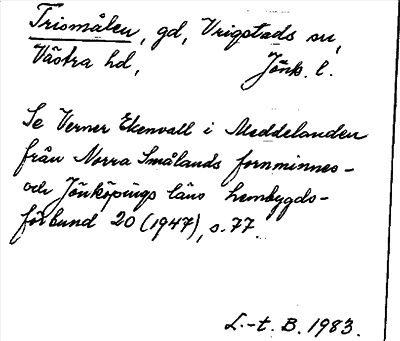 Trismålen, gd, Vrigstads sn,
Västra hd, Jönk. l.
Se Verner Ekenvall i Meddelanden
från Norra Smålands fornminnes-
och Jönköpings läns hembygds-
förbund 20 (1947), s. 77.
L.-t. B. 1983.